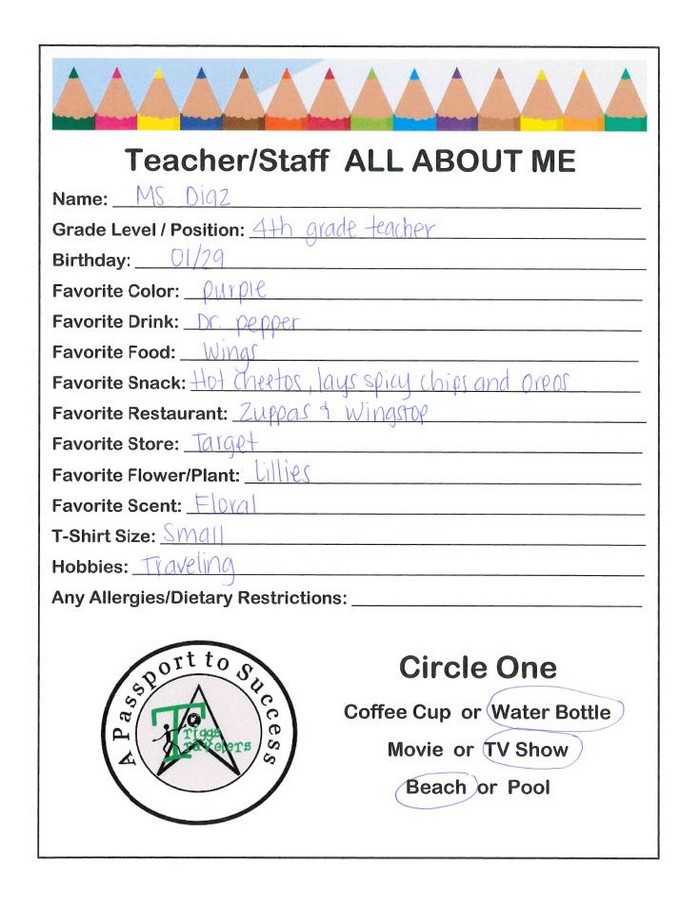 Teacher/Staff ALL ABOUT ME
Name: MS Diaz
Grade Level / Position: 4th grade teacher
Birthday: 01/29
Favorite Color: purple
Favorite Drink: Dr. pepper
Favorite Food: Wings
Favorite Snack: Hot cheetos, lays spicy chips and oreos
Favorite Restaurant: Zuppas & Wingstop
Favorite Store: Target
Favorite Flower/Plant: Lillies
Favorite Scent: Floral
T-Shirt Size: Small
Hobbies: Traveling
Any Allergies/Dietary Restrictions:
A Passport to Success
Triggs
Travelers
Circle One
Coffee Cup or Water Bottle
Movie or TV Show
Beach or Pool